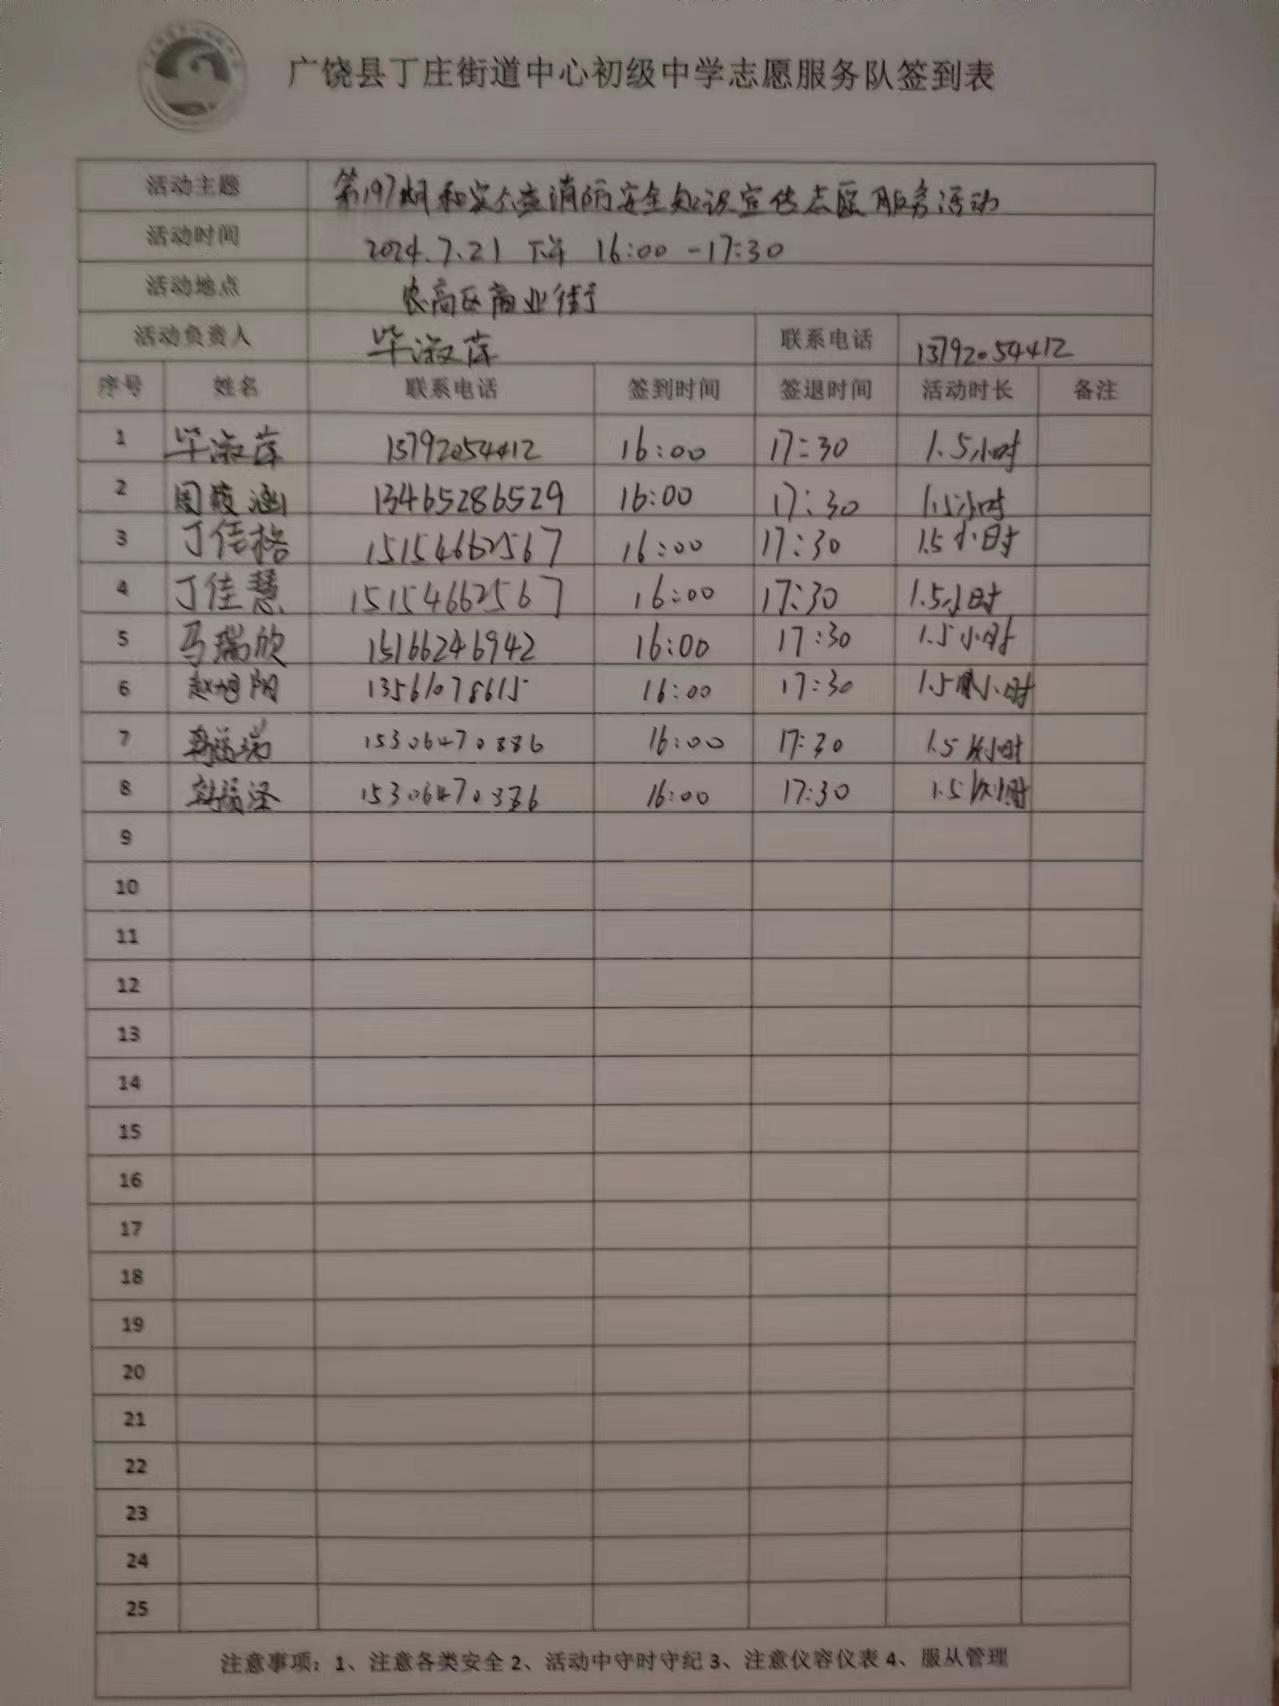 广饶县丁庄街道中心初级中学志愿服务队签到表
活动主题 第197期和安公益消防安全知识宣传志愿服务活动
活动时间 2024.7.21 下午 16:00-17:30
活动地点 农高区商业街
活动负责人 毕淑萍 联系电话 13792054412
序号 姓名 联系电话 签到时间 签退时间 活动时长 备注
1 毕淑萍 13792054412 16:00 17:30 1.5小时
2 周筱涵 13465286529 16:00 17:30 1.5小时
3 丁佳格 15154662567 16:00 17:30 1.5小时
4 丁佳慧 15154662567 16:00 17:30 1.5小时
5 马瑞欣 15166246942 16:00 17:30 1.5小时
6 赵旭阳 13561078615 16:00 17:30 1.5小时
7 15306470886 16:00 17:30 1.5小时
8 15306470386 16:00 17:30 1.5小时
9
10
11
12
13
14
15
16
17
18
19
20
21
22
23
24
25
注意事项：1、注意各类安全 2、活动中守时守纪 3、注意仪容仪表 4、服从管理